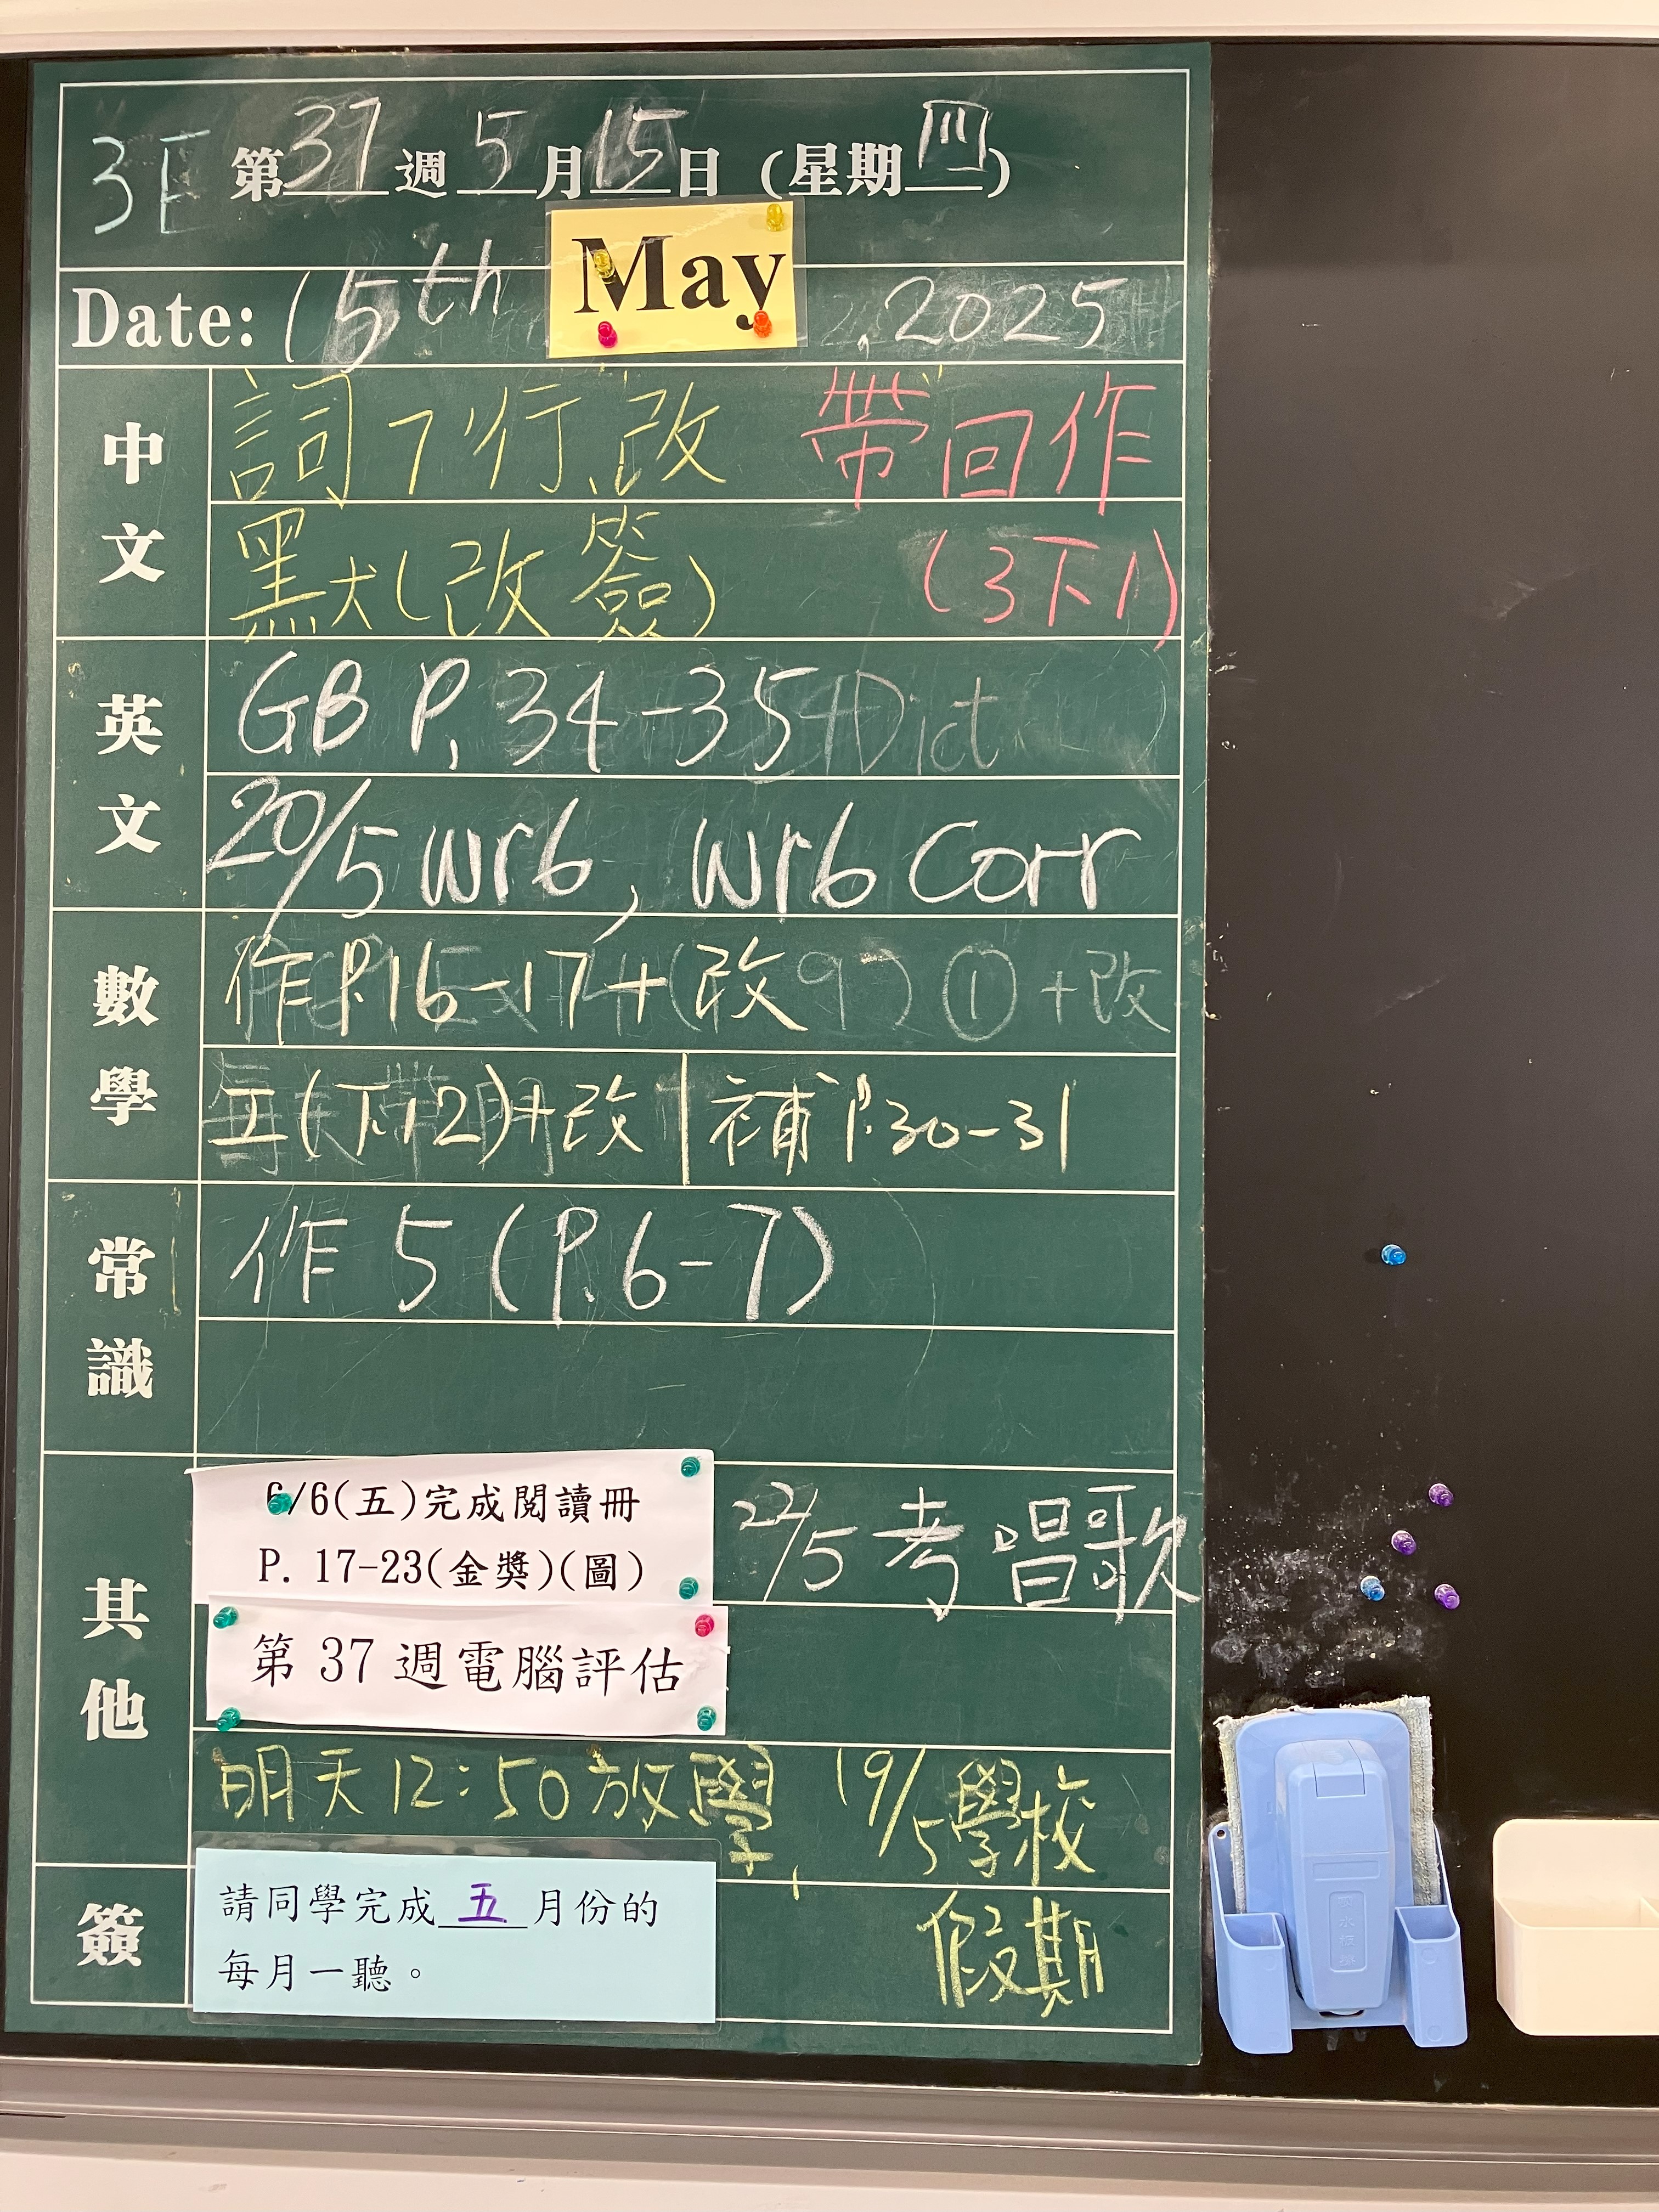 3E 第37週 5月15日 (星期四)
Date: 15th May, 2025
中文
詞7行,改 帶回作
默(改簽) (3下1)
英文
GB P. 34-35
20/5 Wr6, Wr6 Corr
數學
作P.16-17+改
工(下12)+改|補P.30-31
常識
作5(P.6-7)
其他
6/6(五)完成閱讀冊
P. 17-23(金獎)(圖)
22/5 考唱歌
第 37 週電腦評估
明天12:50放學, 19/5學校
假期
簽
請同學完成五月份的
每月一聽。